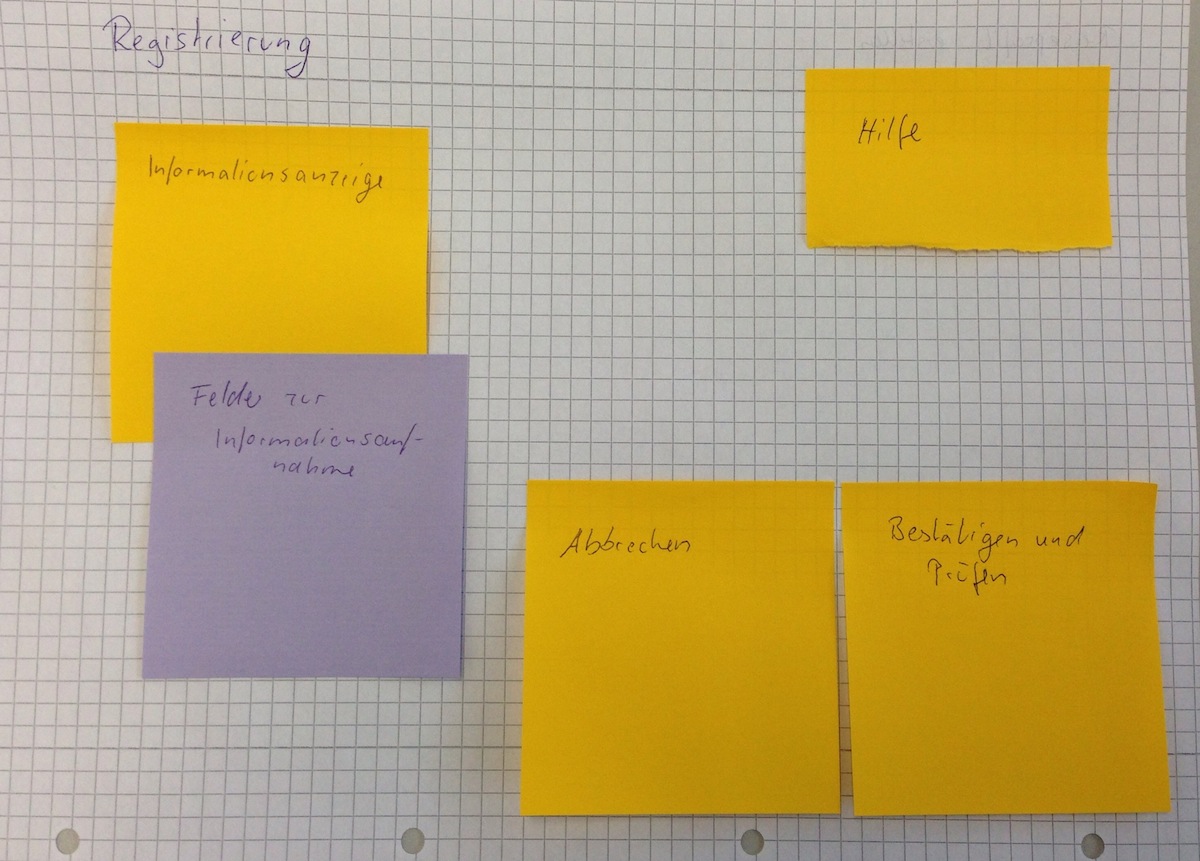 Registrierung
Hilfe
Informationsanzeige
Felder zur
Informationsauf-
nahme
Abbrechen
Bestätigen und
Prüfen